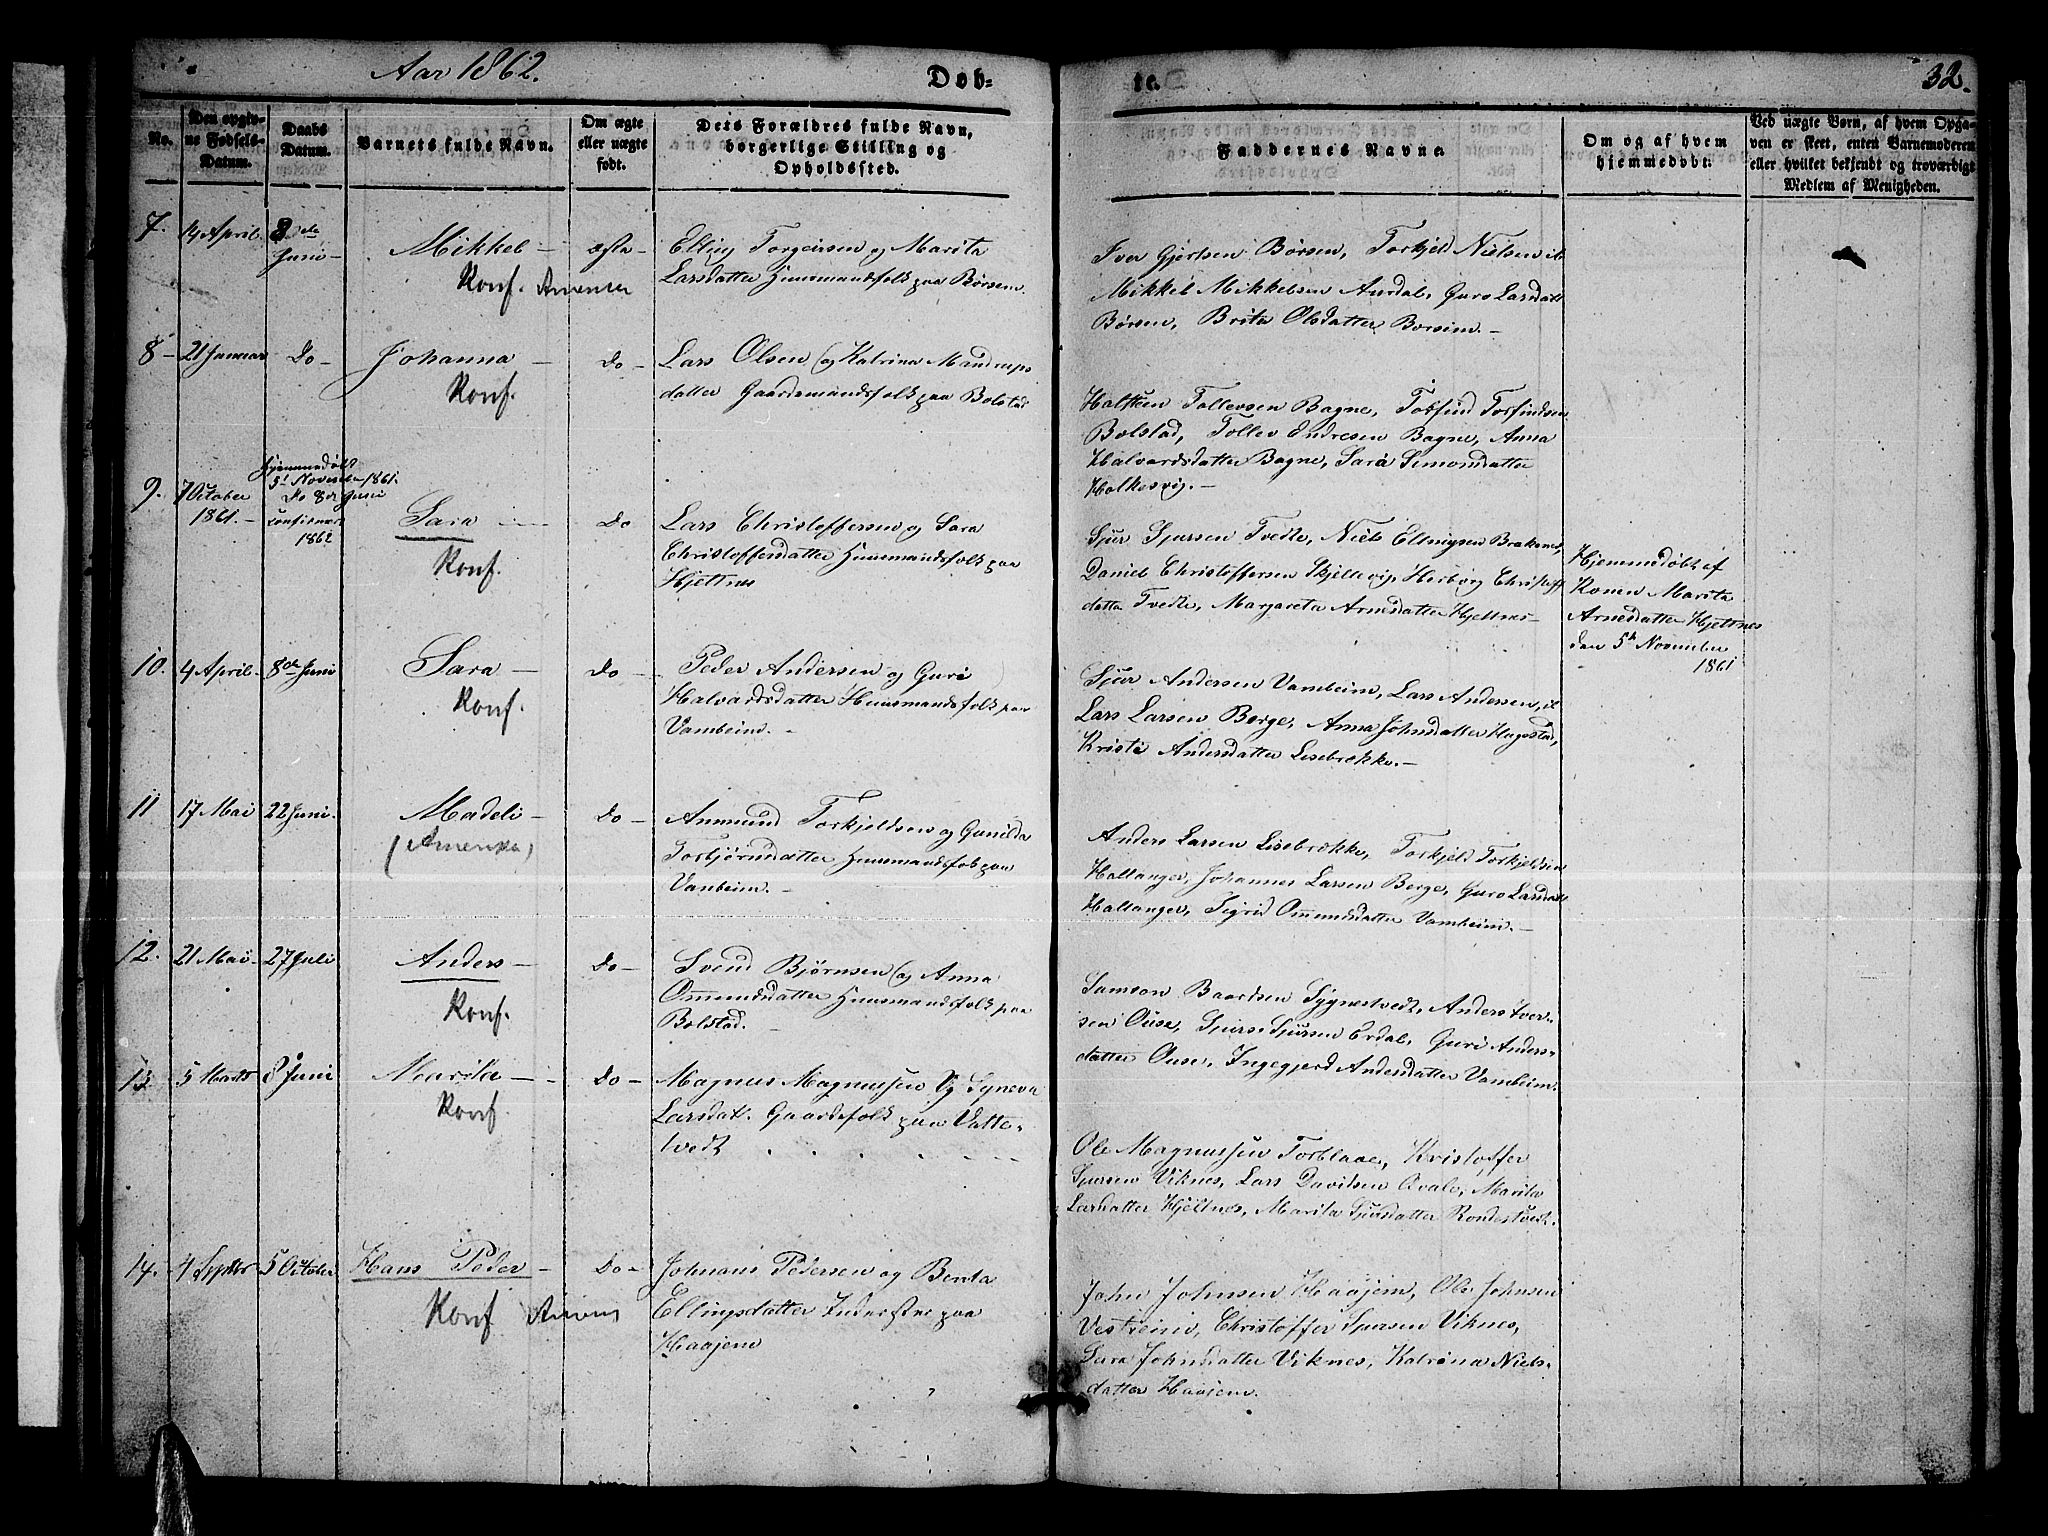 Aar 1862.
Døb-
te.
32.
No.
Den opgiv-
ne Fødsels-
Datum.
Daabs
Datum.
Barnets fulde Navn.
Om ægte
eller uægte
født.
Dets Forældres fulde Navn,
borgerlige Stilling og
Opholdssted.
Faddernes Navne.
Om og af hvem
hjemmedøbt.
Ved uægte Børn, af hvem Opga-
ven er skeet, enten Barnemoderen
eller hvilket bekjendt og troværdigt
Medlem af Menigheden.
7. 14 April. 8de
Juni -
Mikkel -
Konf.
ægte -
Torgeirsen og Marita
Larsdatter Huusmandsfolk paa Børsem.
Iver Gjertsen Børsen, Torkjeld Nielsen
Mikkel Mikkelsen Aurdal, Guro Larsdatt
Børsen, Brita Olsdatter Borsem. -
8 - 21 Januar Do -
Johanna -
Konf.
Do -
Lars Olsen og Katrina Mandrups
datter Gaardsmandsfolk paa Bolstad
Halsten Tollevsen Bagne, Torfind Torfindsen
Bolstad, Tollev Endresen Bagne, Anna
Halvardsdatter Bagne, Sara Simonsdatter
Holkesvig. -
9. 7 October
1861. -
Hjemmedøbt
5t November 1861.
Do 8de Juni
1862
Sara
Konf.
Do
Lars Christoffersen og Sara
Christoffersdatter Huusmandsfolk paa
Hjeltnes
Sjur Sjursen Tvedte, Niels
Daniel Christoffersen Skjeltevig, Herborg Christoff
datter Tvedte, Margareta Arnesdatter Hjeltnes -
Hjemmedøbt af
Konen Marita
Arnesdatter Hjeltnes
den 5te November
1861
10. 4 April. 8de Juni
Sara -
Konf.
Do -
Peder Andersen og Guri
Halvardsdatter Huusmandsfolk paa
Vambeim. -
Sjur Andersen Vambeim, Lars Andersen,
Lars Larsen Berge, Anna Johnsdatter Hagestad,
Kristi Andersdatter Lisebrække. -
11 17 Mai 22 Juni.
Madeli -
(Amerika)
Do -
Ammund Torkjeldsen og Gunilda
Torbjørnsdatter Huusmandsfolk paa
Vambeim. -
Anders Larsen Lisebrække, Torkjeld Torkjeldsen
Hallanger, Johannes Larsen Berge, Guro Larsdatt
Hallanger, Sigrid Ommundsdatter Vambeim. -
12. 21 Mai - 27 Juli
Anders -
Konf.
Do -
Svend Bjørnsen og Anna
Ommundsdatter Huusmandsfolk paa
Bolstad. -
Samson Baardsen Sygnestvedt, Anders Iver-
sen Ouse, Sjur Sjursen Erdal, Guri Anders-
datter Ouse, Ingegjerd Andersdatter Vambeim.
13 - 5 Marts 8 Juni
Marita -
Konf.
Do -
Magnus Magnussen og Syneva
Larsdatt. Gaardsfolk paa Vatte-
tvedt
Ole Magnussen Torblaae, Kristoffer
Sjursen Viknes, Lars Davidsen Qvale, Marita
Larsdatter Hjeltnes, Marita Sjursdatter Rondestvedt.
14. - 4 Septbr 5 October
Hans Peder -
Konf
Do -
Johans Pedersen og Benta
Ellingsdatter Inderster paa
Haajem
John Johnsen Haajem, Ole Johnsen
Vestreim, Christoffer Sjursen Viknes,
Sara Johnsdatter Viknes, Katrina Niels-
datter Haajem.